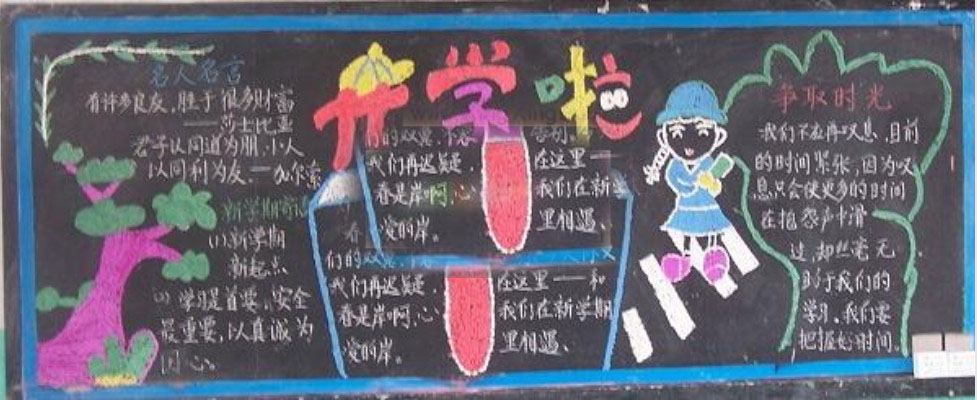 开学啦
名人名言
有许多良友，胜于很多财富
——莎士比亚
君子以同道为朋，小人
以同利为友。——加尔索
新学期寄
(1)新学期
新起点
(2)学习是首要，安全
最重要，以真诚为
同心。
们的双翼，不
我们再迟疑，
春是岸啊，心
爱的岸。
告别
在这里一
我们在新学
里相遇、
春
们的双翼
我们再迟疑，
春是岸啊，心
爱的岸。
在这里——和
我们在新学期
里相遇、
争取时光
我们不在再叹息，目前
的时间紧张，因为叹
息只会使更多的时间
在抱怨声中滑
过，却丝毫无
助于我们的
学习。我们要
把握好时间。